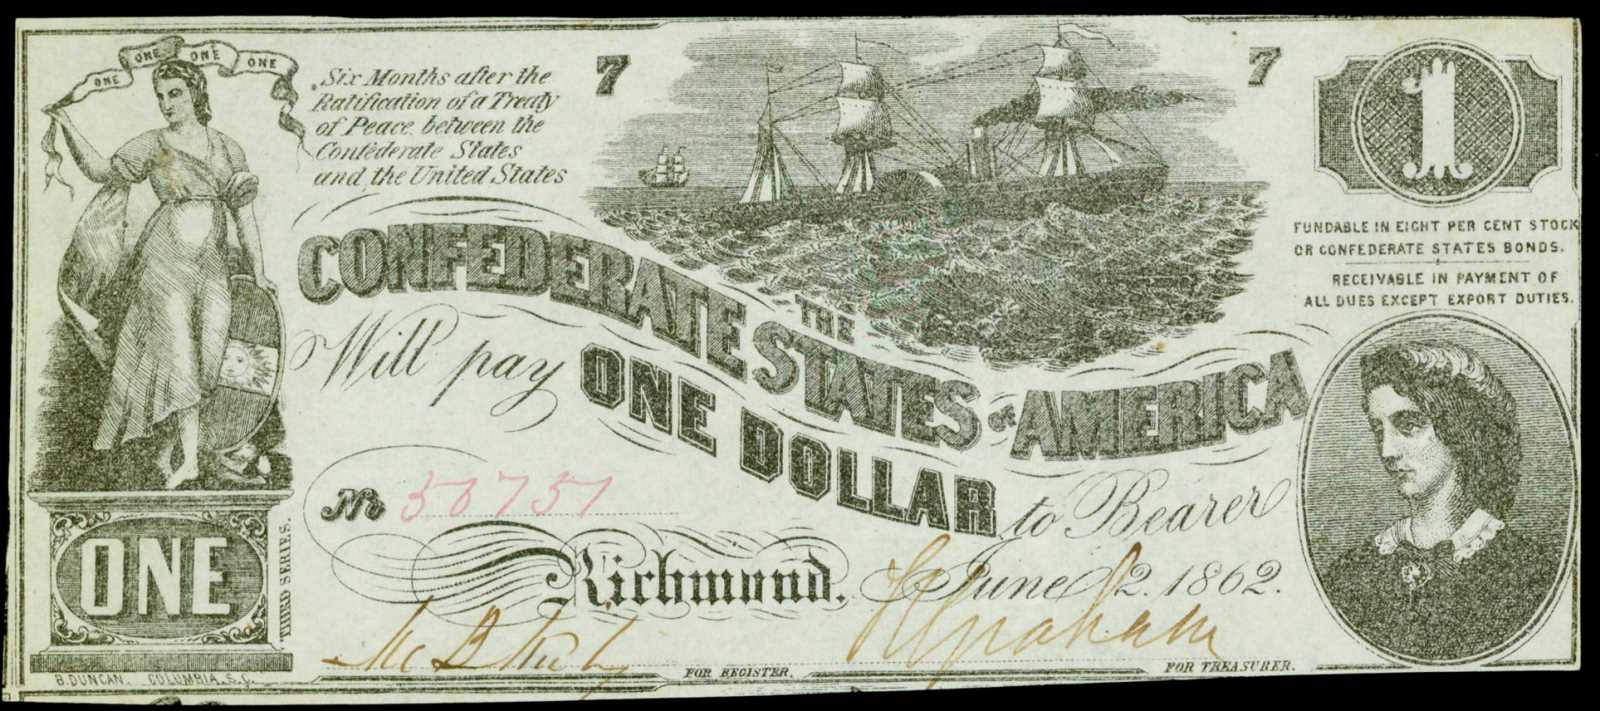 ONE ONE ONE ONE
Six Months after the
Ratification of a Treaty
of Peace between the
Confederate States
and the United States
7
7
1
FUNDABLE IN EIGHT PER CENT STOCK
OR CONFEDERATE STATES BONDS.
RECEIVABLE IN PAYMENT OF
ALL DUES EXCEPT EXPORT DUTIES.
THE
CONFEDERATE STATES OF AMERICA
Will pay ONE DOLLAR to Bearer
No
Richmond, June 2. 1862.
ONE
THIRD SERIES.
Graham
FOR REGISTER.
FOR TREASURER.
B. DUNCAN. COLUMBIA, S.C.